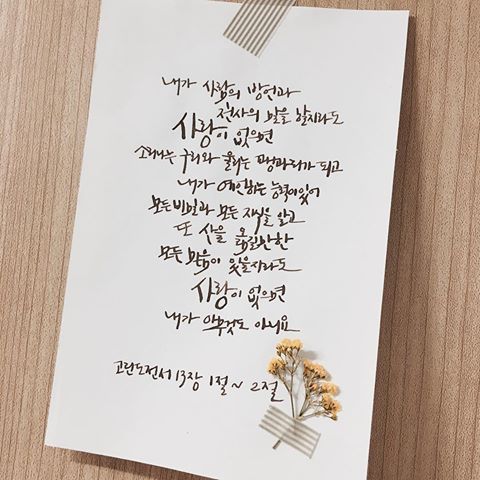 내가 사람의 방언과
천사의 말을 할지라도
사랑이 없으면
소리나는 구리와 울리는 꽹과리가 되고
내가 예언하는 능력이 있어
모든 비밀과 모든 지식을 알고
또 산을 옮길만한
모든 믿음이 있을지라도
사랑이 없으면
내가 아무것도 아니요
고린도전서 13장 1절 ~ 2절